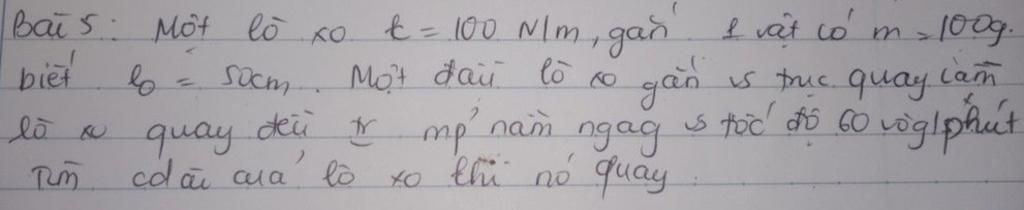 Bài 5: Một lò xo k = 100 N/m, gắn 1 vật có m = 100g.
biết l₀ = 50cm. Một đầu lò xo gắn vs trục quay làm
lò xo quay đều tr mp' nằm ngag vs tốc độ 60 vòg/phút
Tìm cdài của lò xo khi nó quay